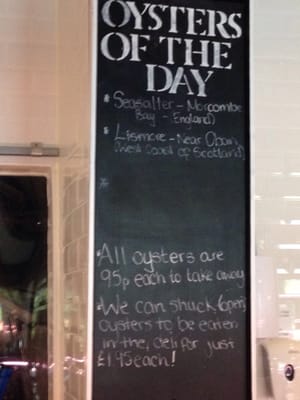 OYSTERS
OF THE
DAY
* Seasalter - Morcombe
Bay - England)
* Lismore - Near Oban
(West Coast of Scotland)
*All oysters are
95p each to take away
*We can shuck (open)
oysters to be eaten
in the, deli for just
£1.95 each!